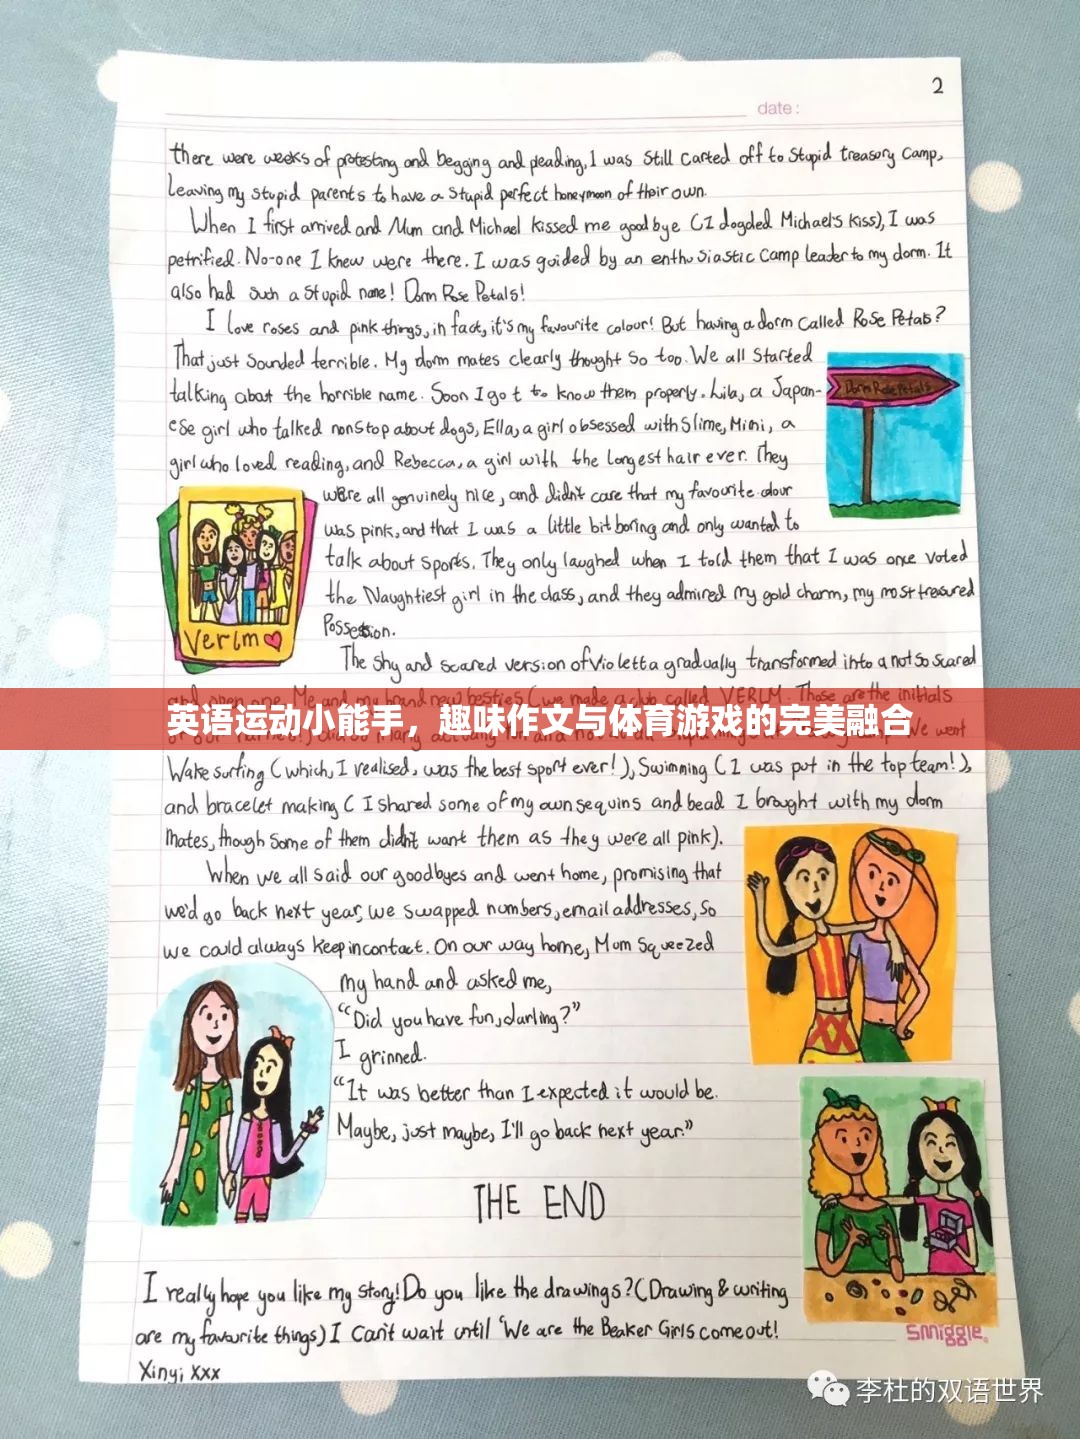 2
date:
there were weeks of protesting and begging and pleading, I was still carted off to Stupid treasury Camp,
leaving my stupid parents to have a stupid perfect honeymoon of their own.
When I first arrived and Mum and Michael kissed me goodbye (I dogded Michael's kiss), I was
petrified. No-one I knew were there. I was guided by an enthusiastic camp leader to my dorm. It
also had such a stupid name! Dorm Rose Petals!
I love roses and pink things, in fact, it's my favourite colour! But having a dorm called Rose Petals?
That just sounded terrible. My dorm mates clearly thought so too. We all started
talking about the horrible name. Soon I got to know them properly. Lila, a Japan-
Dorm Rose Petals
ese girl who talked nonstop about dogs, Ella, a girl obsessed with slime, Mimi, a
girl who loved reading, and Rebecca, a girl with the longest hair ever. They
were all genuinely nice, and didn't care that my favourite colour
was pink, and that I was a little bit boring and only wanted to
talk about sports. They only laughed when I told them that I was once voted
the Naughtiest girl in the class, and they admired my gold charm, my most treasured
Possession.
Verlm
The shy and scared version of Violetta gradually transformed into a not so scared
and open one. Me and my brand new besties (we made a club called VERLM. Those are the initials
英语运动小能手，趣味作文与体育游戏的完美融合
We went
Wake surfing (which, I realised, was the best sport ever!), Swimming (I was put in the top team!),
and bracelet making (I shared some of my own sequins and bead I brought with my dorm
mates, though some of them didn't want them as they were all pink).
When we all said our goodbyes and went home, promising that
we'd go back next year, we swapped numbers, email addresses, so
we could always keep in contact. On our way home, Mom squeezed
my hand and asked me,
"Did you have fun, darling?"
I grinned.
"It was better than I expected it would be.
Maybe, just maybe, I'll go back next year."
THE END
I really hope you like my story! Do you like the drawings? (Drawing & writing
are my favourite things) I Can't wait until 'We are the Beaker Girls come out!
Smiggle
Xinyi xxx
李杜的双语世界